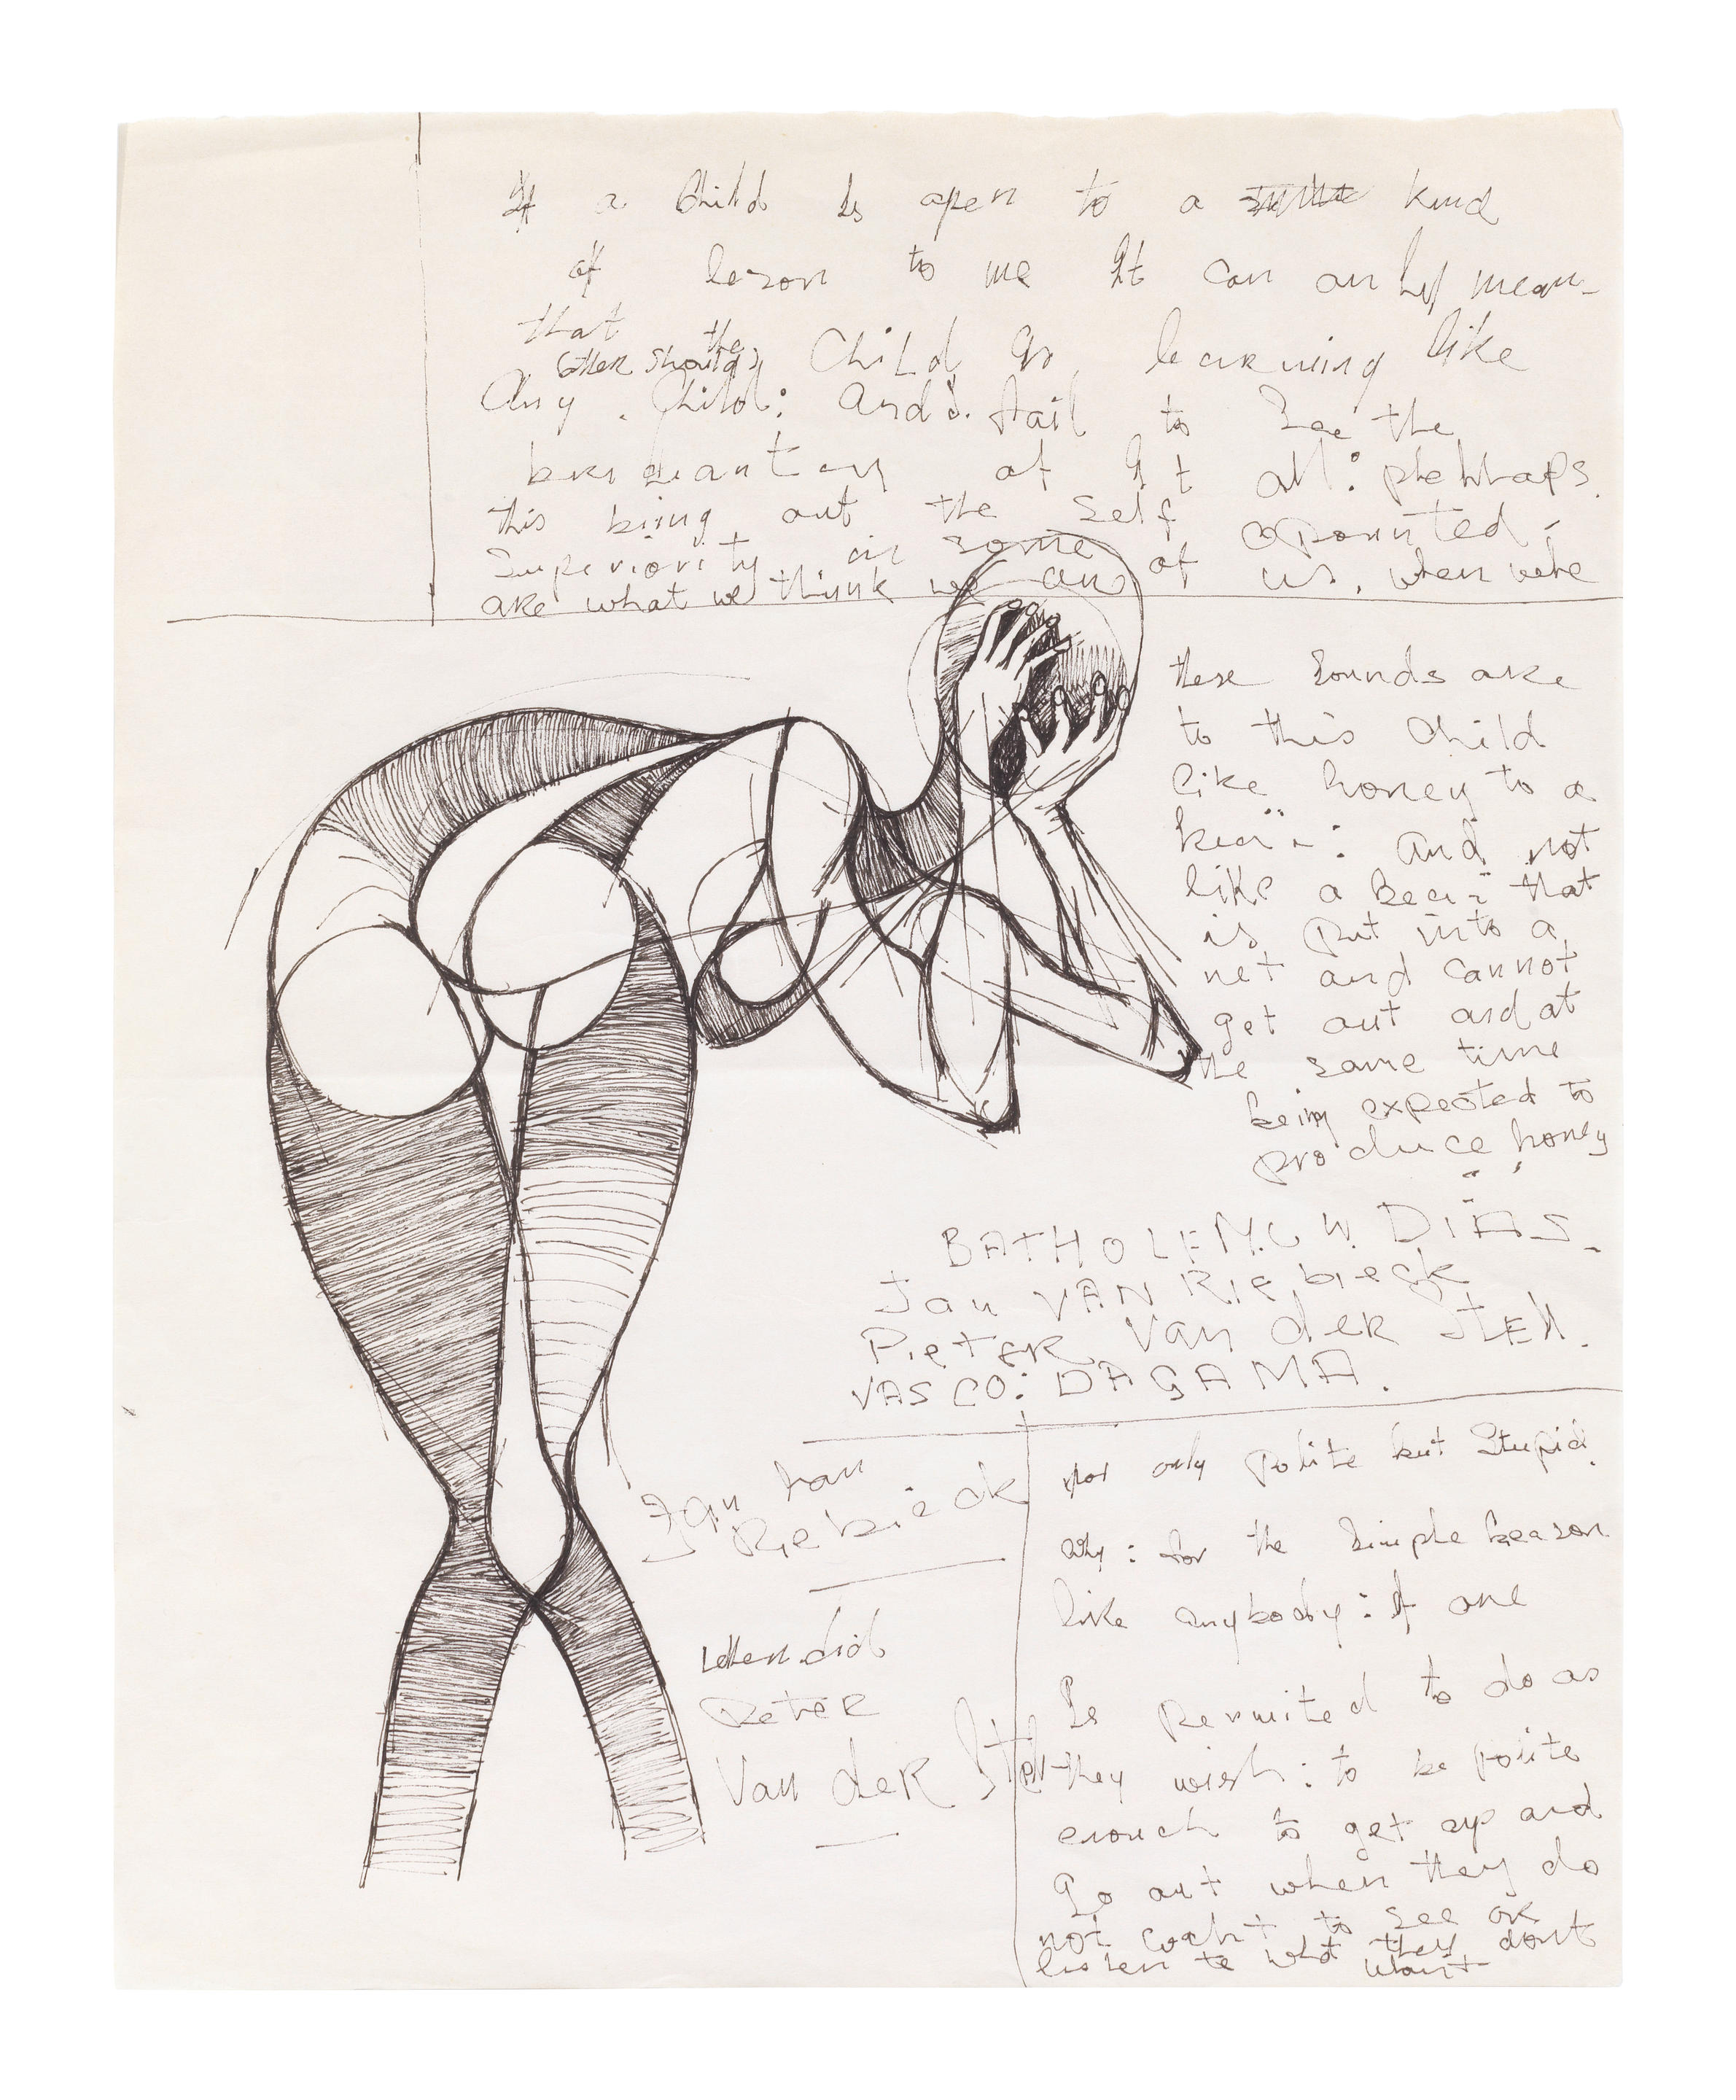 If a Child Is open to a kind
of leson to me It can only mean
that the
(other should) Child go learning like
Any Child: And I. fail to See the
of It all: phehhaps.
this bring out the self apointed
Superiority in some of us, when were
are what we think we are
these Sounds are
to this Child
like honey to a
And not
like a Bear that
is put into a
net and cannot
get out and at
the same time
being expected to
produce honey
BATHOLEMCW. DIAS.
Jan VAN RIebieck
PieteR Van der STEll.
VASCO: DAGAMA.
Not only Polite but Stupid.
Jan han
Rebieck
Why: for the Simple Reason
like anybody: If one
When did
PeteR
Is Permited to do as
Van deR Stell
they wish: to be polite
enouch to get up and
Go out when they do
not to see or
listen to what they dont
Want